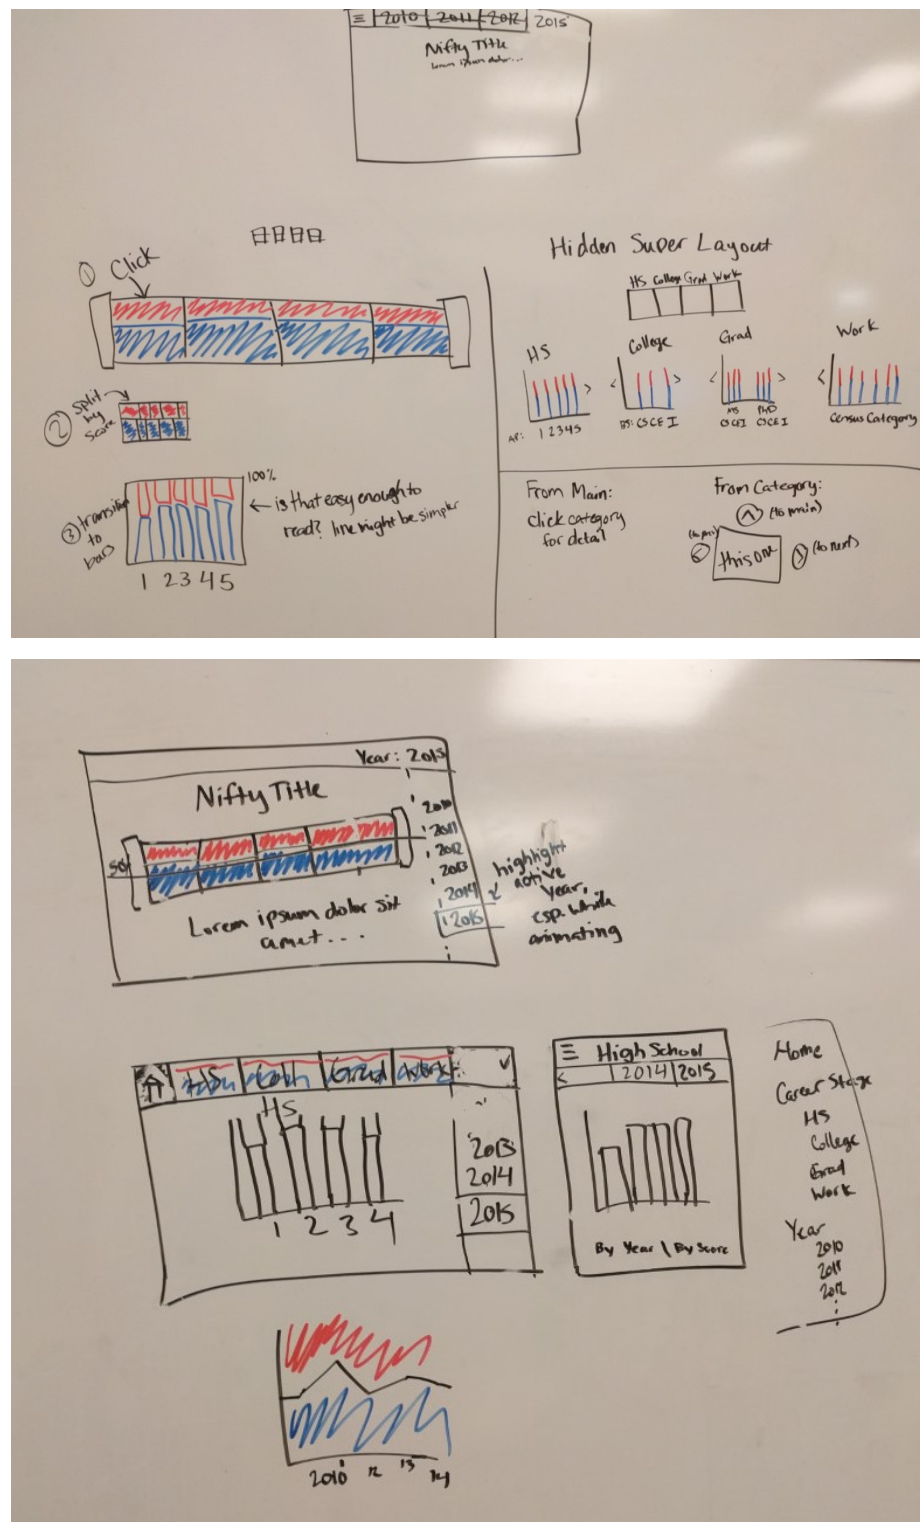 ☰ 2010 2011 2012 2015
Nifty Title
lorem ipsum dolor...
① Click
② Split
by
Score
③ transition
to
bars
100%
← is that easy enough to
read? line might be simpler
1 2 3 4 5
Hidden Super Layout
HS College Grad Work
HS
< >
AP: 1 2 3 4 5
College
< >
BS: CS CE I
Grad
< >
MS PhD
CS CE I CS CE I
Work
<
Census Category
From Main:
click category
for detail
From Category:
(to main)
(to prev)
this one
(to next)
Year: 2015
Nifty Title
50%
Lorem ipsum dolor sit
amet...
2010
2011
2012
2013
2014
2015
highlight
active
year,
esp. while
animating
HS Coll Grad Work
HS
1 2 3 4
2013
2014
2015
☰ High School
< 2014 2015
By Year \ By Score
Home
Career Stage
HS
College
Grad
Work
Year
2010
2011
2012
2010 12 13 14